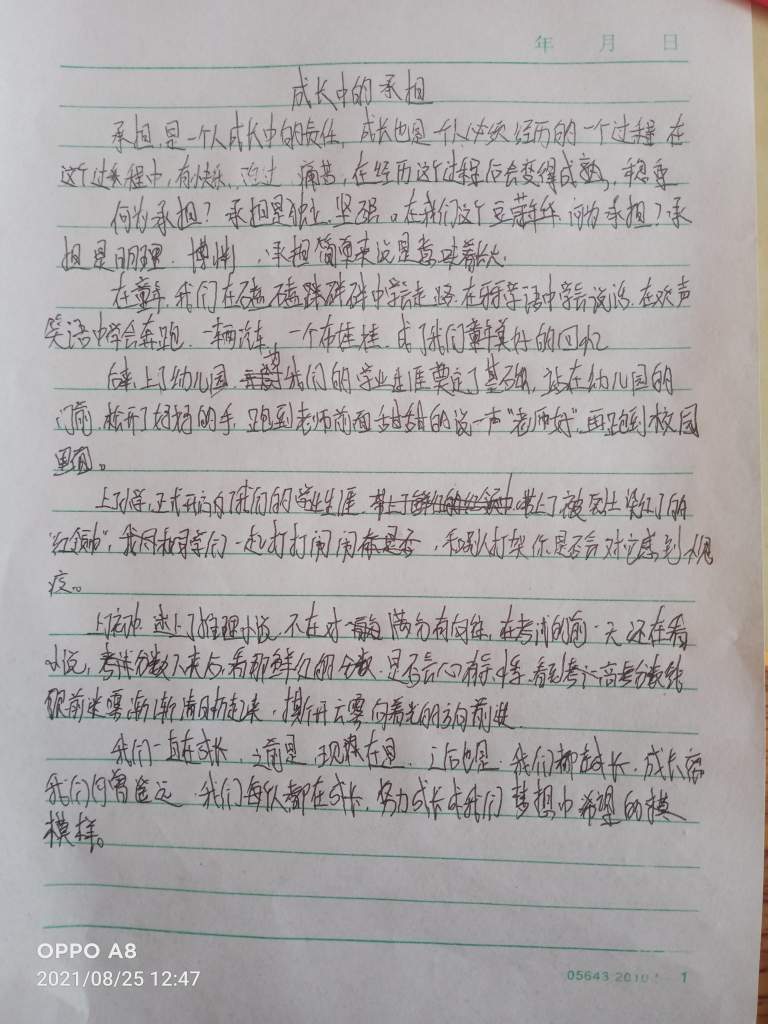 年 月 日
成长中的承担
承担是一个人成长中的责任，成长也是一个人必须经历的一个过程 在
这个过程中，有快乐、难过 痛苦，在经历这个过程后会变得成熟，稳重
何为承担？承担是独立、坚强。在我们这个豆蔻年华 何为承担？承
担是明理．博 ，承担简单来说是意味着长大．
在童年，我们在磕磕跘砰砰中学会走路 在牙牙学语中学会说话，在欢声
笑语中学会奔跑．一辆汽车，一个布娃娃．成了我们童年美好的回忆
后来，上了幼儿园．为我们的学业生涯奠定了基础，站在幼儿园的
门前，松开了妈妈的手，跑到老师前面甜甜的说一声"老师好"，再跑到校园
里面。
上小学，正式开启了我们的学业生涯．带上了被烈士染红了的
"红领巾"，我们和同学们一起打打闹闹，和别人打架你是否会对它感到
疚。
上了初中．迷上了推理小说．不在对满分有向往，在考试的前一天还在看
小说，考试分数下来后，看那鲜红的分数．是否会心有 ，看到 高考分数线
眼前迷雾渐渐清晰起来，撕开云雾向着光的方向前进．
我们一直在成长．之前是 现在是．之后也是．我们都在成长．成长离
我们何曾遥远．我们每人都在成长，努力成长成我们梦想中希望的模
模样。
OPPO A8
2021/08/25 12:47
05643 2010 1